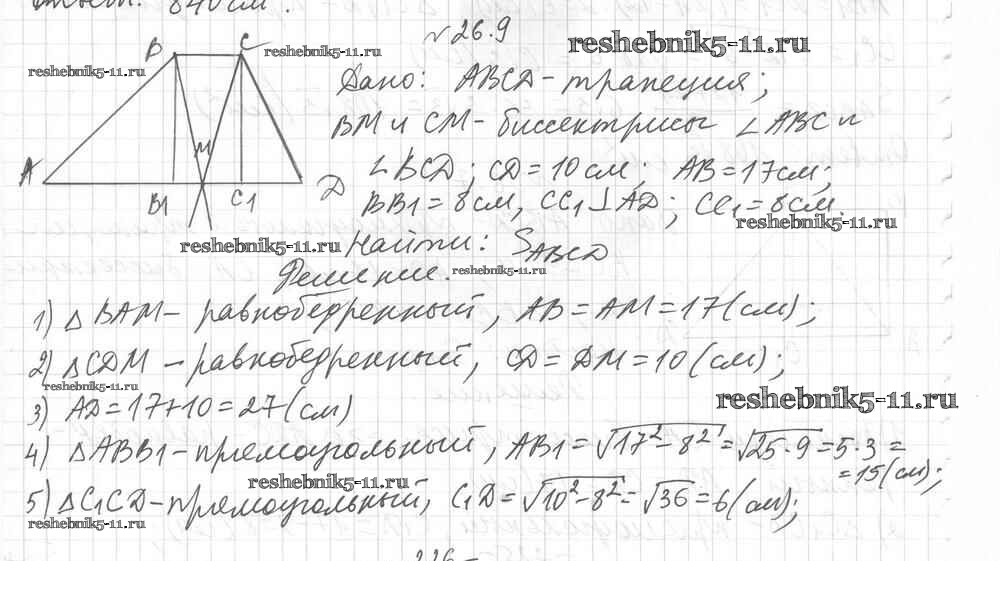 Ответ: 840 см².
№26.9
reshebnik5-11.ru
reshebnik5-11.ru
reshebnik5-11.ru
B C
M
A B1 C1 D
Дано: ABCD - трапеция;
BM и CM - биссектрисы ∠ABC и
∠BCD; CD = 10 см; AB = 17 см;
BB1 = 8 см, CC1 ⊥ AD; CC1 = 8 см.
reshebnik5-11.ru
reshebnik5-11.ru
Найти: S_ABCD
Решение.
reshebnik5-11.ru
1) △ BAM - равнобедренный, AB = AM = 17 (см);
2) △CDM - равнобедренный, CD = DM = 10 (см);
reshebnik5-11.ru
3) AD = 17+10 = 27 (см)
reshebnik5-11.ru
4) △ABB1 - прямоугольный, AB1 = √17²-8² = √25·9 = 5·3 =
= 15 (см);
reshebnik5-11.ru
5) △C1CD - прямоугольный, C1D = √10²-8² = √36 = 6 (см);
reshebnik5-11.ru